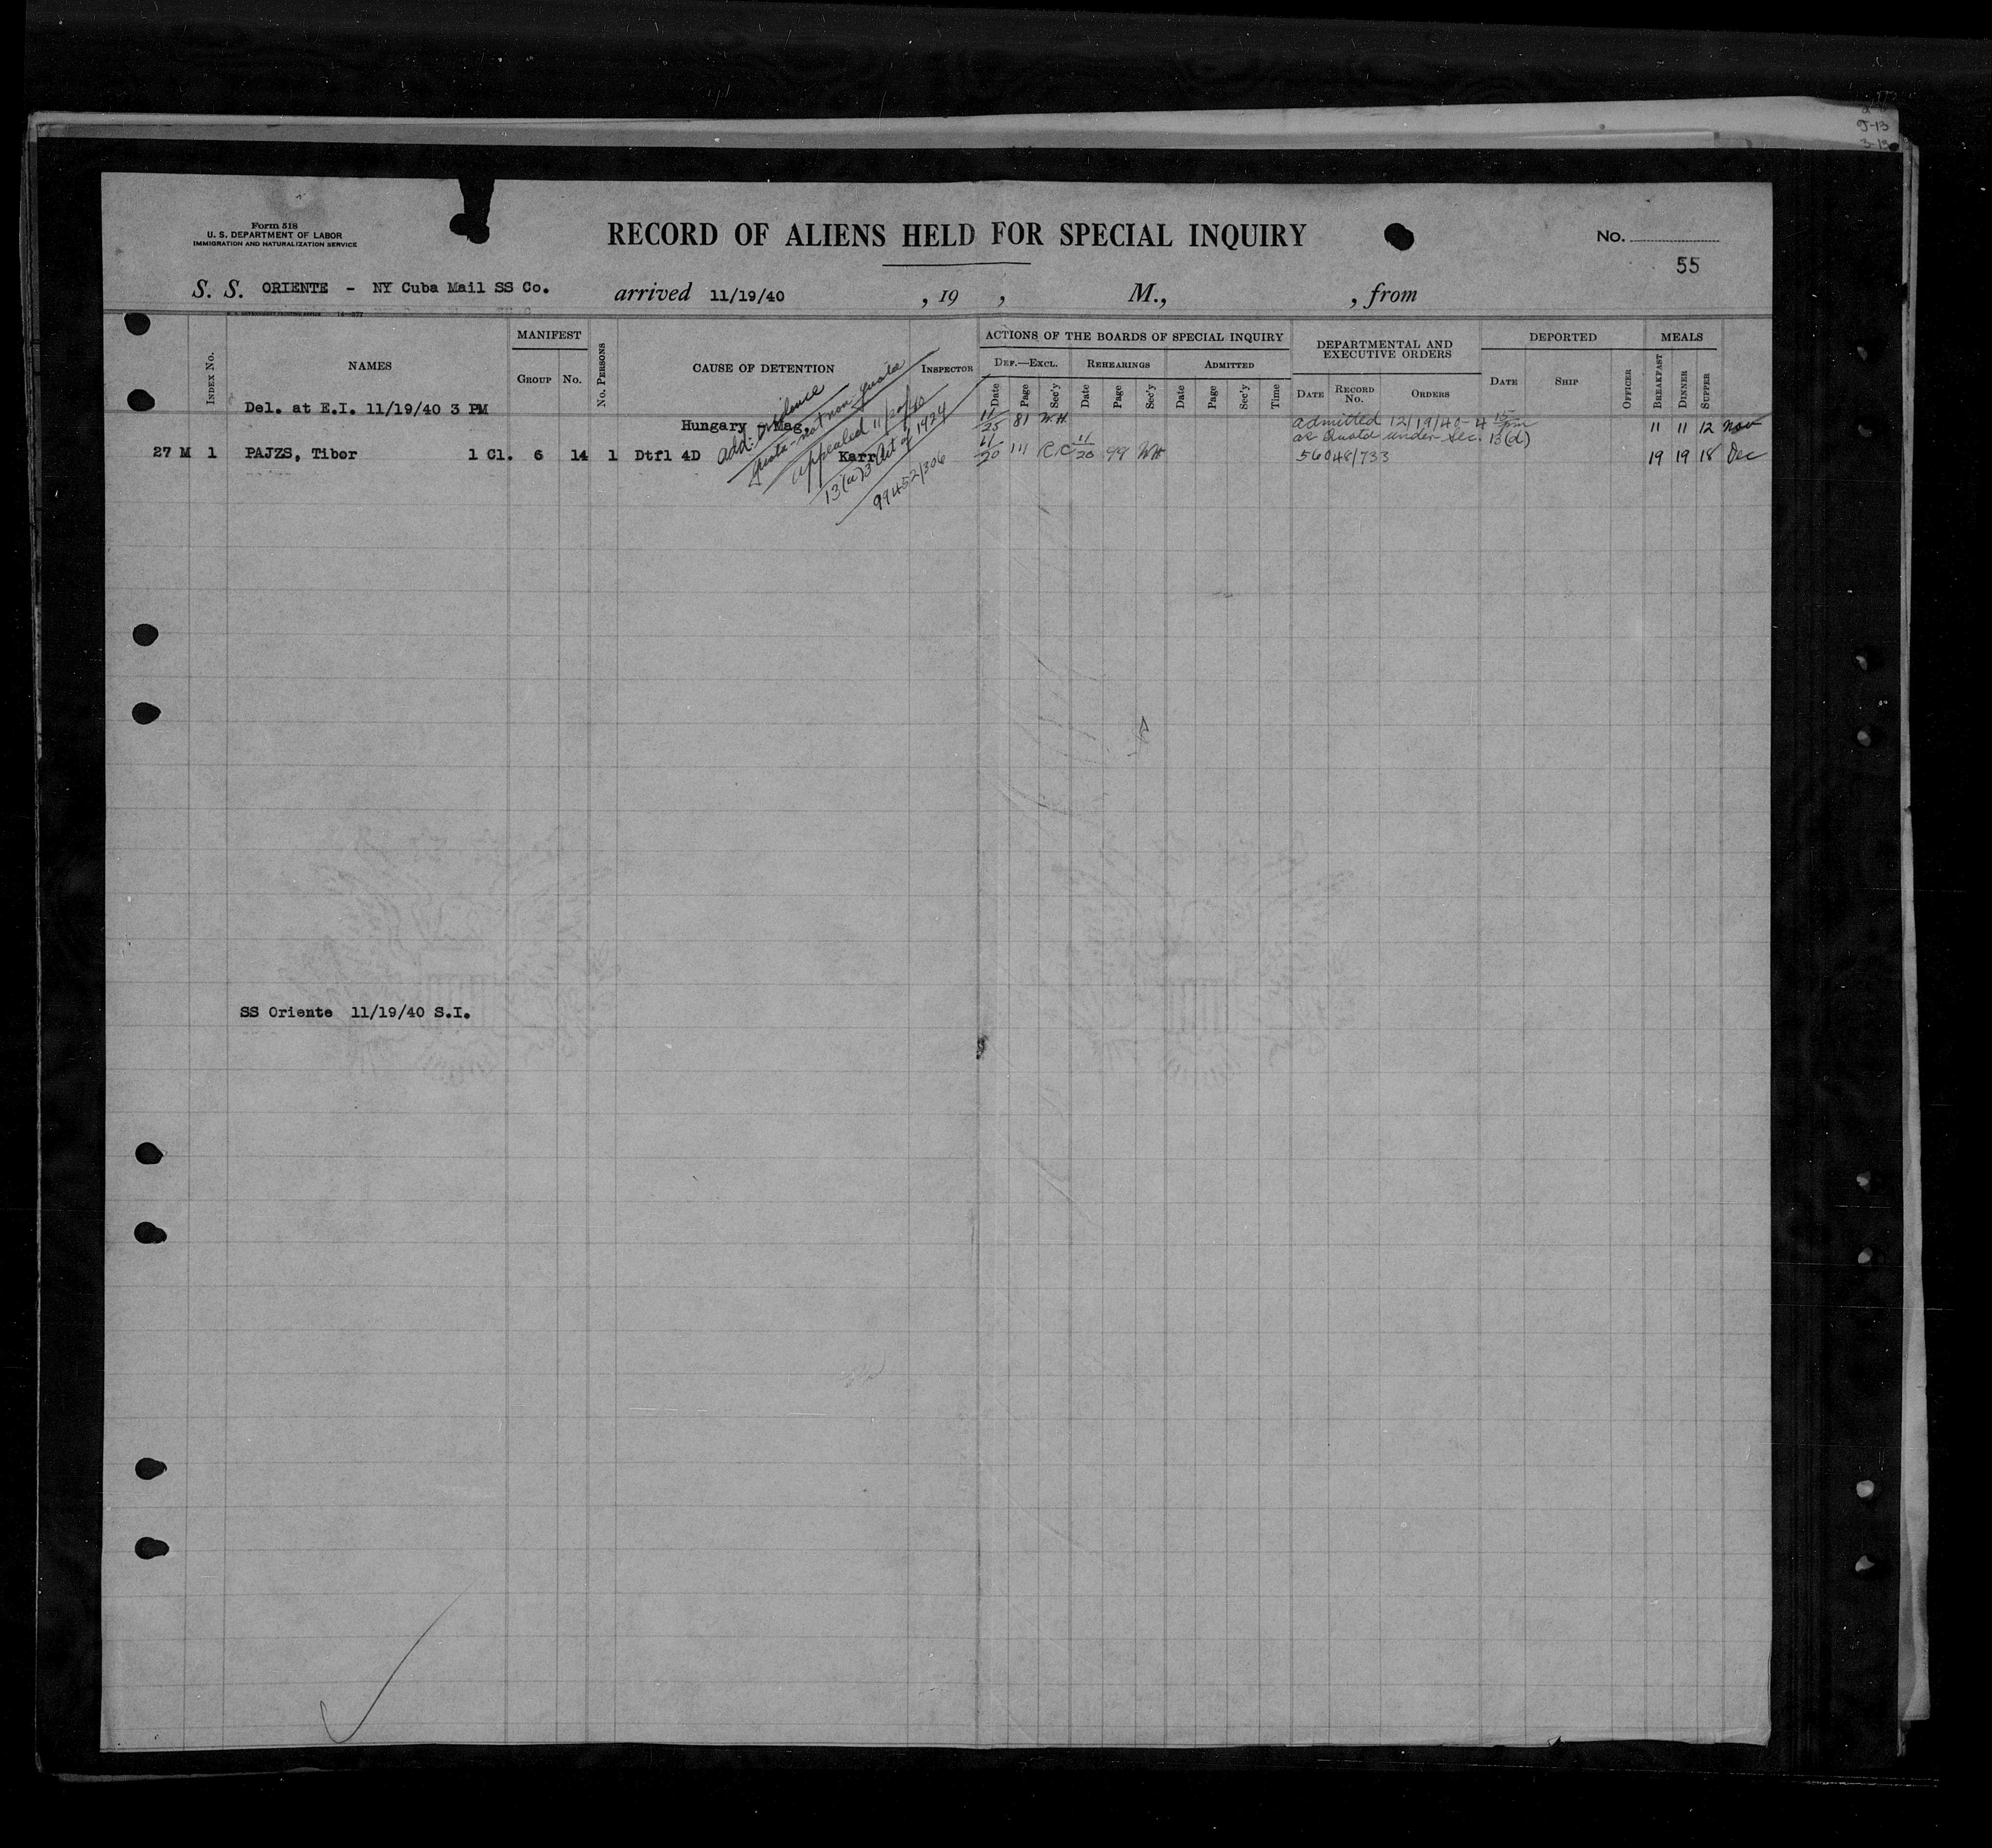 J-13
Form 518
U. S. DEPARTMENT OF LABOR
IMMIGRATION AND NATURALIZATION SERVICE
RECORD OF ALIENS HELD FOR SPECIAL INQUIRY
No.
55
S. S. ORIENTE - NY Cuba Mail SS Co. arrived 11/19/40 , 19 , M., , from
Index No.
NAMES
MANIFEST
Group No.
No. Persons
CAUSE OF DETENTION
Inspector
ACTIONS OF THE BOARDS OF SPECIAL INQUIRY
Def.—Excl. Rehearings Admitted
Date Page Sec'y Date Page Sec'y Date Page Sec'y Time
DEPARTMENTAL AND
EXECUTIVE ORDERS
Date Record No. Orders
DEPORTED
Date Ship Officer
MEALS
Breakfast Dinner Supper
Del. at E.I. 11/19/40 3 PM
Hungary - Mag.
11/25 81 W.H.
admitted 12/19/40 - 4 15 pm
as Quota under Sec. 13(d)
11 11 12 Nov
27 M 1 PAJZS, Tibor 1 Cl. 6 14 1 Dtfl 4D Karr
11/20 111 R.C. 11/20 99 WH
56048/733
19 19 18 Dec
add: evidence
quota - not non quota
appealed 11/20/40
13(a)3 Act of 1924
99452/306
SS Oriente 11/19/40 S.I.